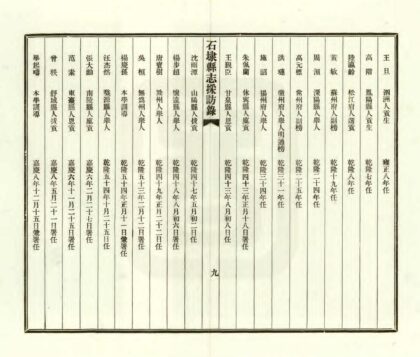 王旦 泗洲人貢生 雍正八年任
高階 鳳陽縣人貢生 乾隆七年任
陸瀛齡 松江府人貢生 乾隆八年任
袁敏 蘇州府人副榜 乾隆十九年任
周灝 溧陽縣人舉人 乾隆二十四年任
高元標 常州府人副榜 乾隆二十五年任
洪 徽州府人舉人明通榜 乾隆三十一年任
施 揚州府人舉人 乾隆三十四年任
朱佩蘭 休寧縣人廩貢 乾隆四十三年正月十八日署任
王 臣 甘泉縣人恩貢 乾隆四十三年八月初八日任
石埭縣志採訪錄
九
沈雨潭 山陽縣人拔貢 乾隆四十七年五月初二日任
楊步超 懷遠縣人舉人 乾隆四十八年八月初六日署任
唐寶樹 滁州人舉人 乾隆四十九年正月二十二日任
吳桓 無為州人舉人 乾隆五十三年二月十二日署任
楊慶孫 本學訓導 乾隆五十四年正月十一日兼署任
汪志然 婺源縣人舉人 乾隆五十四年十月二十五日任
張大勳 南陵縣人廩貢 嘉慶六年二月二十七日署任
范素 東臺縣人恩貢 嘉慶六年十一月二十五日署任
曾 舒城縣人歲貢 嘉慶八年五月二十一日署任
畢起疇 本學訓導 嘉慶八年十二月十五日兼署任